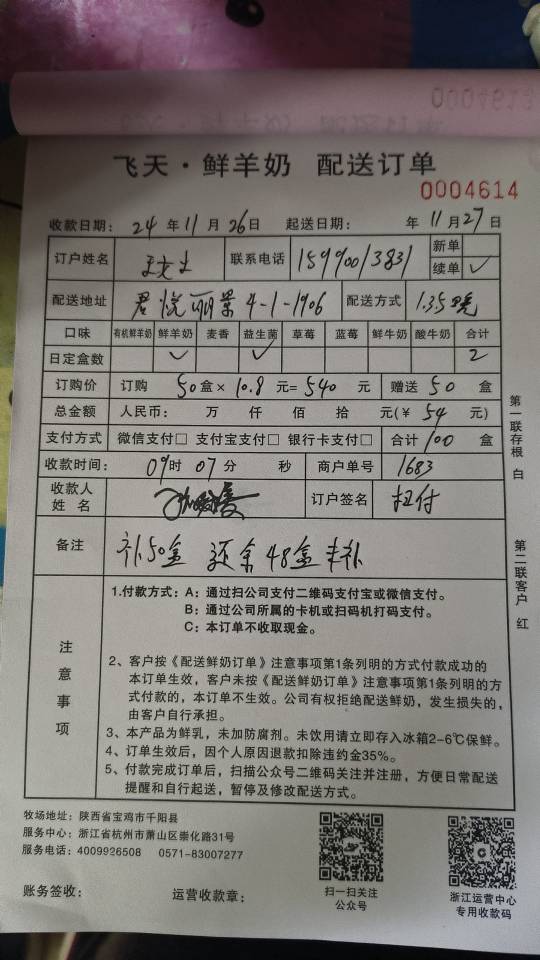 飞天·鲜羊奶 配送订单
0004614
收款日期: 24 年 11 月 26 日 起送日期: 年 11 月 27 日
订户姓名 联系电话 15990013831 新单
续单 ✓
配送地址 君悦丽景 4-1-1906 配送方式 1.35晚
口味 有机鲜羊奶 鲜羊奶 麦香 益生菌 草莓 蓝莓 鲜牛奶 酸牛奶 合计
日定盒数 ✓ ✓ 2
订购价 订购 50 盒× 10.8 元= 540 元 赠送 50 盒
总金额 人民币: 万 仟 佰 拾 元(¥ 54 元)
支付方式 微信支付□ 支付宝支付□ 银行卡支付□ 合计 100 盒
收款时间: 09时 07分 秒 商户单号 1683
收款人姓名 订户签名 扫付
备注 补50盒 还余48盒未补
注意事项
1.付款方式: A: 通过扫公司支付二维码支付宝或微信支付。
B: 通过公司所属的卡机或扫码机打码支付。
C: 本订单不收取现金。
2、客户按《配送鲜奶订单》注意事项第1条列明的方式付款成功的
本订单生效,客户未按《配送鲜奶订单》注意事项第1条列明的方
式付款的,本订单不生效。公司有权拒绝配送鲜奶,发生损失的,
由客户自行承担。
3、本产品为鲜乳,未加防腐剂。未饮用请立即存入冰箱2-6℃保鲜。
4、订单生效后,因个人原因退款扣除违约金35%。
5、付款完成订单后,扫描公众号二维码关注并注册,方便日常配送
提醒和自行起送,暂停及修改配送方式。
第一联存根 白
第二联客户 红
牧场地址: 陕西省宝鸡市千阳县
服务中心: 浙江省杭州市萧山区崇化路31号
服务电话: 4009926508 0571-83007277
账务签收: 运营收款章:
扫一扫关注
公众号
浙江运营中心
专用收款码